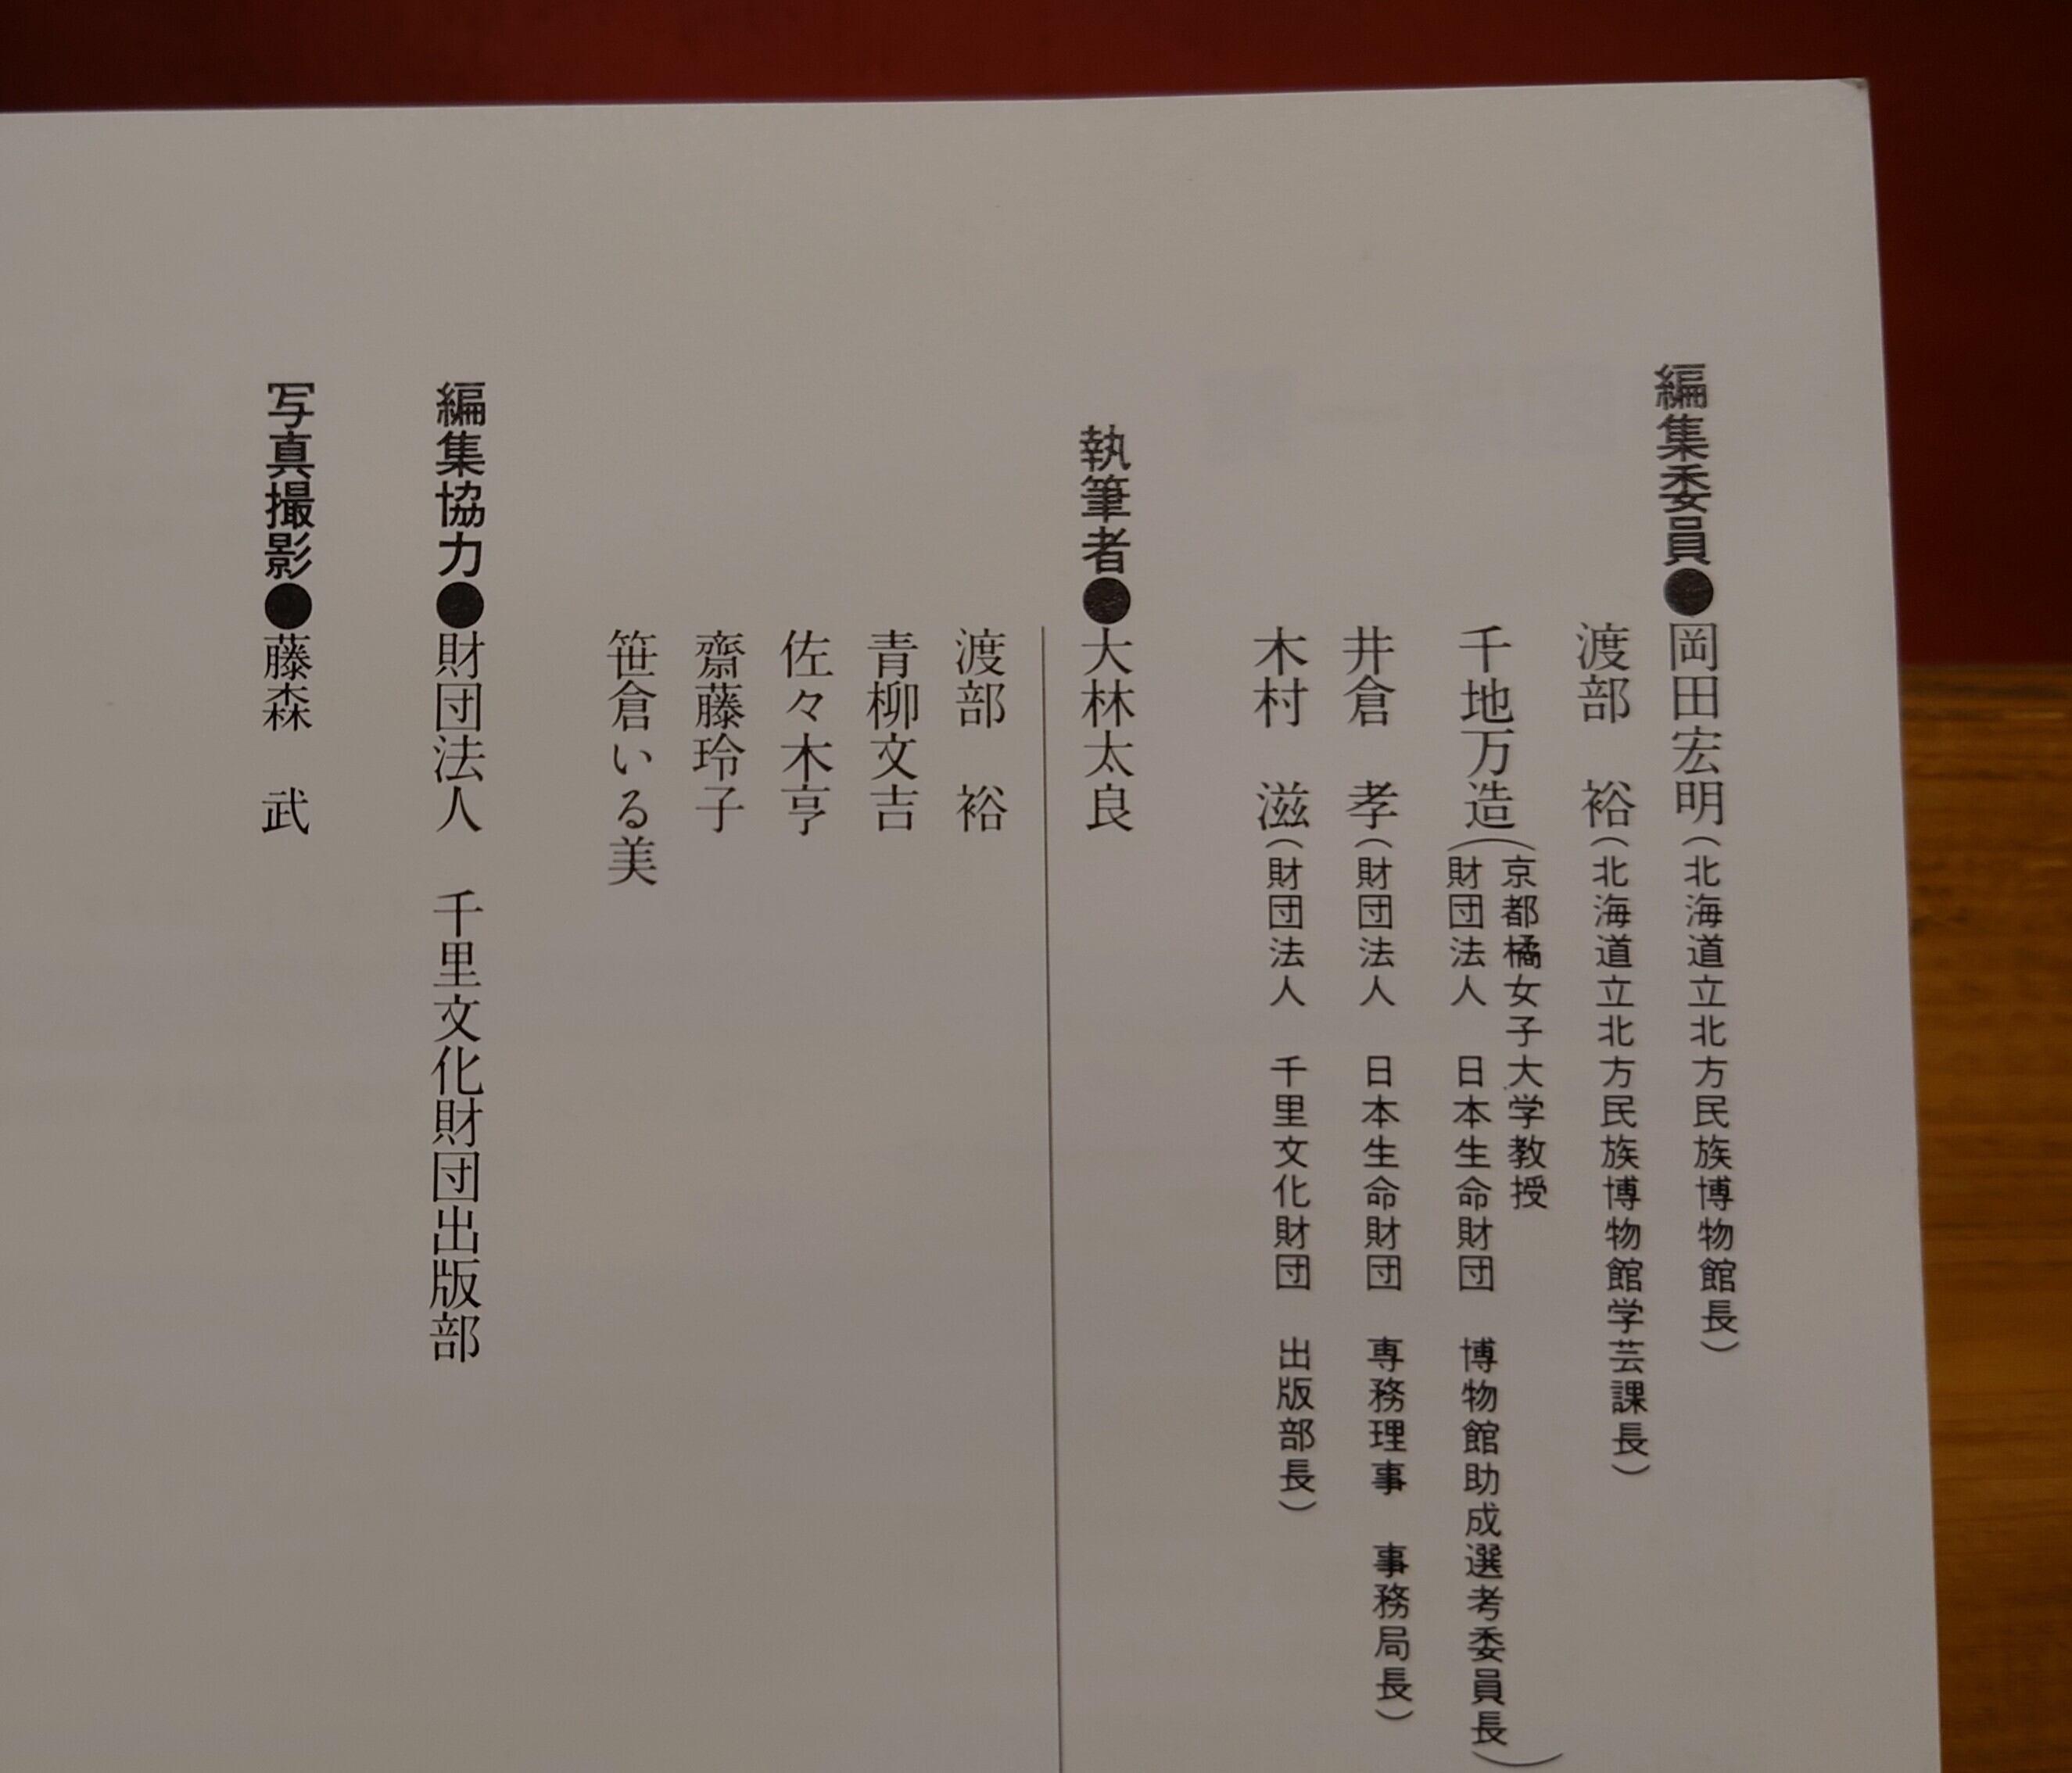 編集委員●岡田宏明(北海道立北方民族博物館長)
渡部　裕(北海道立北方民族博物館学芸課長)
千地万造(京都橘女子大学教授
財団法人　日本生命財団　博物館助成選考委員長)
井倉　孝(財団法人　日本生命財団　専務理事　事務局長)
木村　滋(財団法人　千里文化財団　出版部長)
執筆者●大林太良
渡部　裕
青柳文吉
佐々木亨
齋藤玲子
笹倉いる美
編集協力●財団法人　千里文化財団出版部
写真撮影●藤森　武